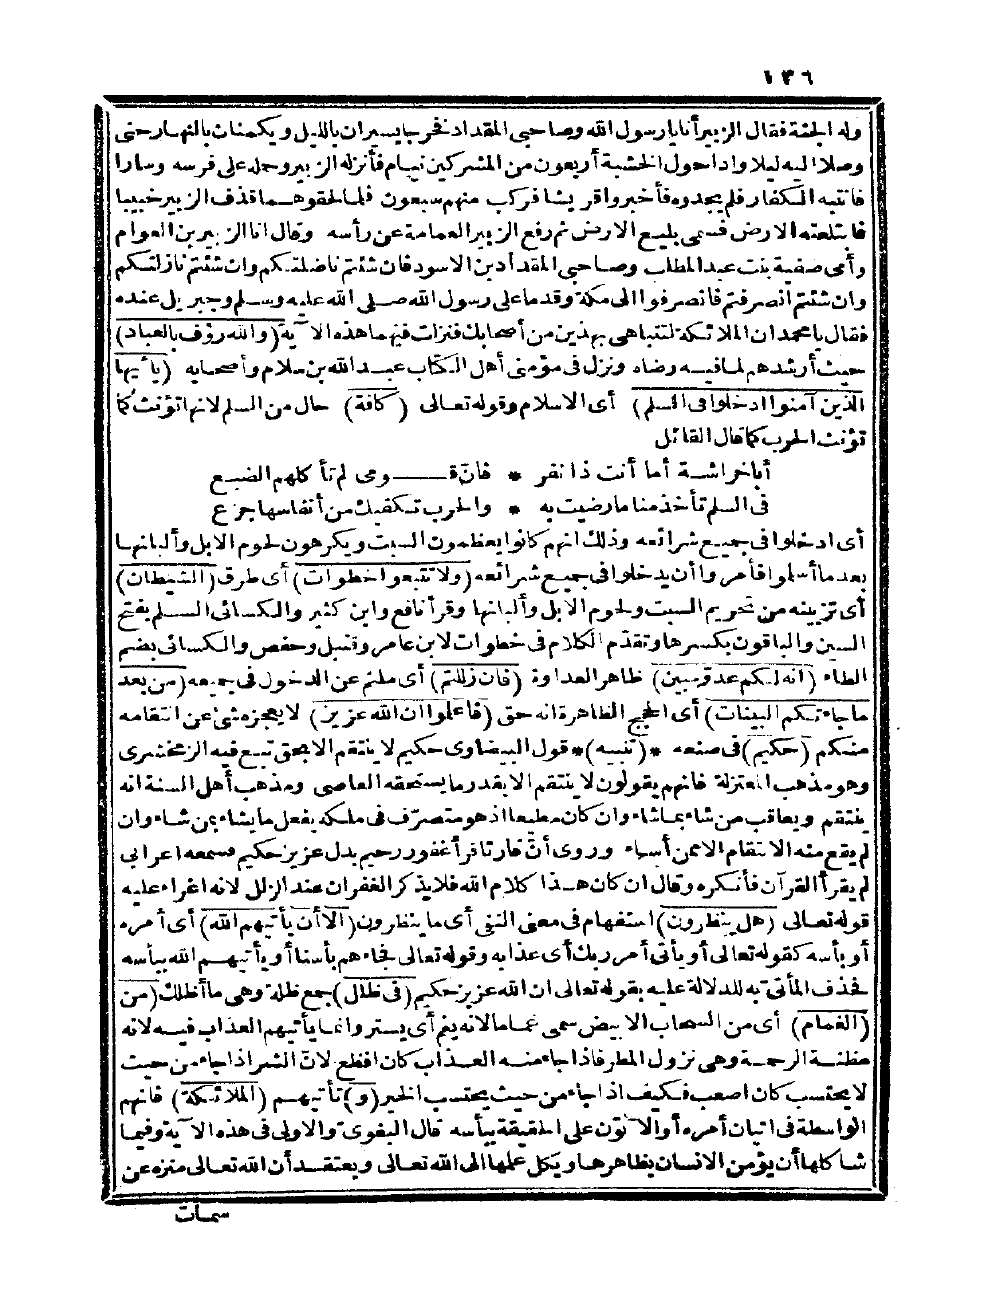 ١٣٦
وله الجنة فقال الزبير أنا يارسول الله وصاحبي المقداد فخرجا يسيران بالليل ويكمنان بالنهار حتى
وصلا اليه ليلا واذا حول الخشبة أربعون من المشركين نيام فأنزله الزبير وحمله على فرسه وسارا
فانتبه الكفار فلم يجدوه فأخبروا قريشا فركب منهم سبعون فلما لحقوهما قذف الزبير خبيبا
فابتلعته الارض فسمى بليع الارض ثم رفع الزبير العمامة عن رأسه وقال انا الزبير بن العوام
وأمى صفية بنت عبد المطلب وصاحبي المقداد بن الاسود فان شئتم ناضلتكم وان شئتم نازلتكم
وان شئتم انصرفتم فانصرفوا الى مكة وقدما على رسول الله صلى الله عليه وسلم وجبريل عنده
فقال يا محمد ان الملائكة لتباهى بهذين من أصحابك فنزلت فيهما هذه الآية (والله رؤف بالعباد)
حيث أرشدهم لما فيه رضاه ونزل فى مؤمنى أهل الكتاب عبد الله بن سلام وأصحابه (يأيها
الذين آمنوا ادخلوا فى السلم) أى الاسلام وقوله تعالى (كافة) حال من السلم لانها تؤنث كما
تؤنث الحرب كما قال القائل
أباخراشة أما أنت ذا نفر * فانّ قومى لم تأكلهم الضبع
فى السلم تأخذ منا ما رضيت به * والحرب تكفيك من أنفاسها جزع
أى ادخلوا فى جميع شرائعه وذلك انهم كانوا يعظمون السبت ويكرهون لحوم الابل وألبانها
بعد ما أسلموا فأمروا أن يدخلوا فى جميع شرائعه (ولا تتبعوا خطوات) أى طرق (الشيطان)
أى تزيينه من تحريم السبت ولحوم الابل وألبانها وقرأ نافع وابن كثير والكسائى السلم بفتح
السين والباقون بكسرها وتقدّم الكلام فى خطوات لابن عامر وقنبل وحفص والكسائى بضم
الطاء (انه لكم عدوّ مبين) ظاهر العداوة (فان زللتم) أى ملتم عن الدخول فى جميعه (من بعد
ما جاءتكم البينات) أى الحجج الظاهرة انه حق (فاعلموا أن الله عزيز) لا يعجزه شئ عن انتقامه
منكم (حكيم) فى صنعه *(تنبيه)* قول البيضاوى حكيم لا ينتقم الا بحق تبع فيه الزمخشرى
وهو مذهب المعتزلة فانهم يقولون لا ينتقم الا بقدر ما يستحقه العاصى ومذهب أهل السنة انه
ينتقم ويعاقب من شاء بما شاء وان كان مطيعا اذ هو متصرّف فى ملكه يفعل ما يشاء بمن شاء وان
لم يقع منه الانتقام الا ممن أساء وروى أنّ قارئا قرأ غفور رحيم بدل عزيز حكيم فسمعه اعرابى
لم يقرأ القرآن فأنكره وقال ان كان هذا كلام الله فلا يذكر الغفران عند الزلل لانه اغراء عليه
قوله تعالى (هل ينظرون) استفهام فى معنى النفى أى ما ينتظرون (الا أن يأتيهم الله) أى أمره
أو بأسه كقوله تعالى أو يأتى أمر ربك أى عذابه وقوله تعالى فجاءهم بأسنا أو يأتيهم الله ببأسه
فحذف المأتىّ به للدلالة عليه بقوله تعالى ان الله عزيز حكيم (فى ظلل) جمع ظلة وهى ما أظلك (من
الغمام) أى من السحاب الابيض سمى غماما لانه يغم أى يستر وانما يأتيهم العذاب فيه لانه
مظنة الرحمة وهى نزول المطر فاذا جاء منه العذاب كان افظع لانّ الشر اذا جاء من حيث
لا يحتسب كان اصعب فكيف اذا جاء من حيث يحتسب الخير (و) تأتيهم (الملائكة) فانهم
الواسطة فى اتيان أمره أو الآتون على الحقيقة ببأسه قال البغوى والاولى فى هذه الآية وفيما
شاكلها أن يؤمن الانسان بظاهرها ويكل علمها الى الله تعالى ويعتقد أن الله تعالى منزه عن
سمات